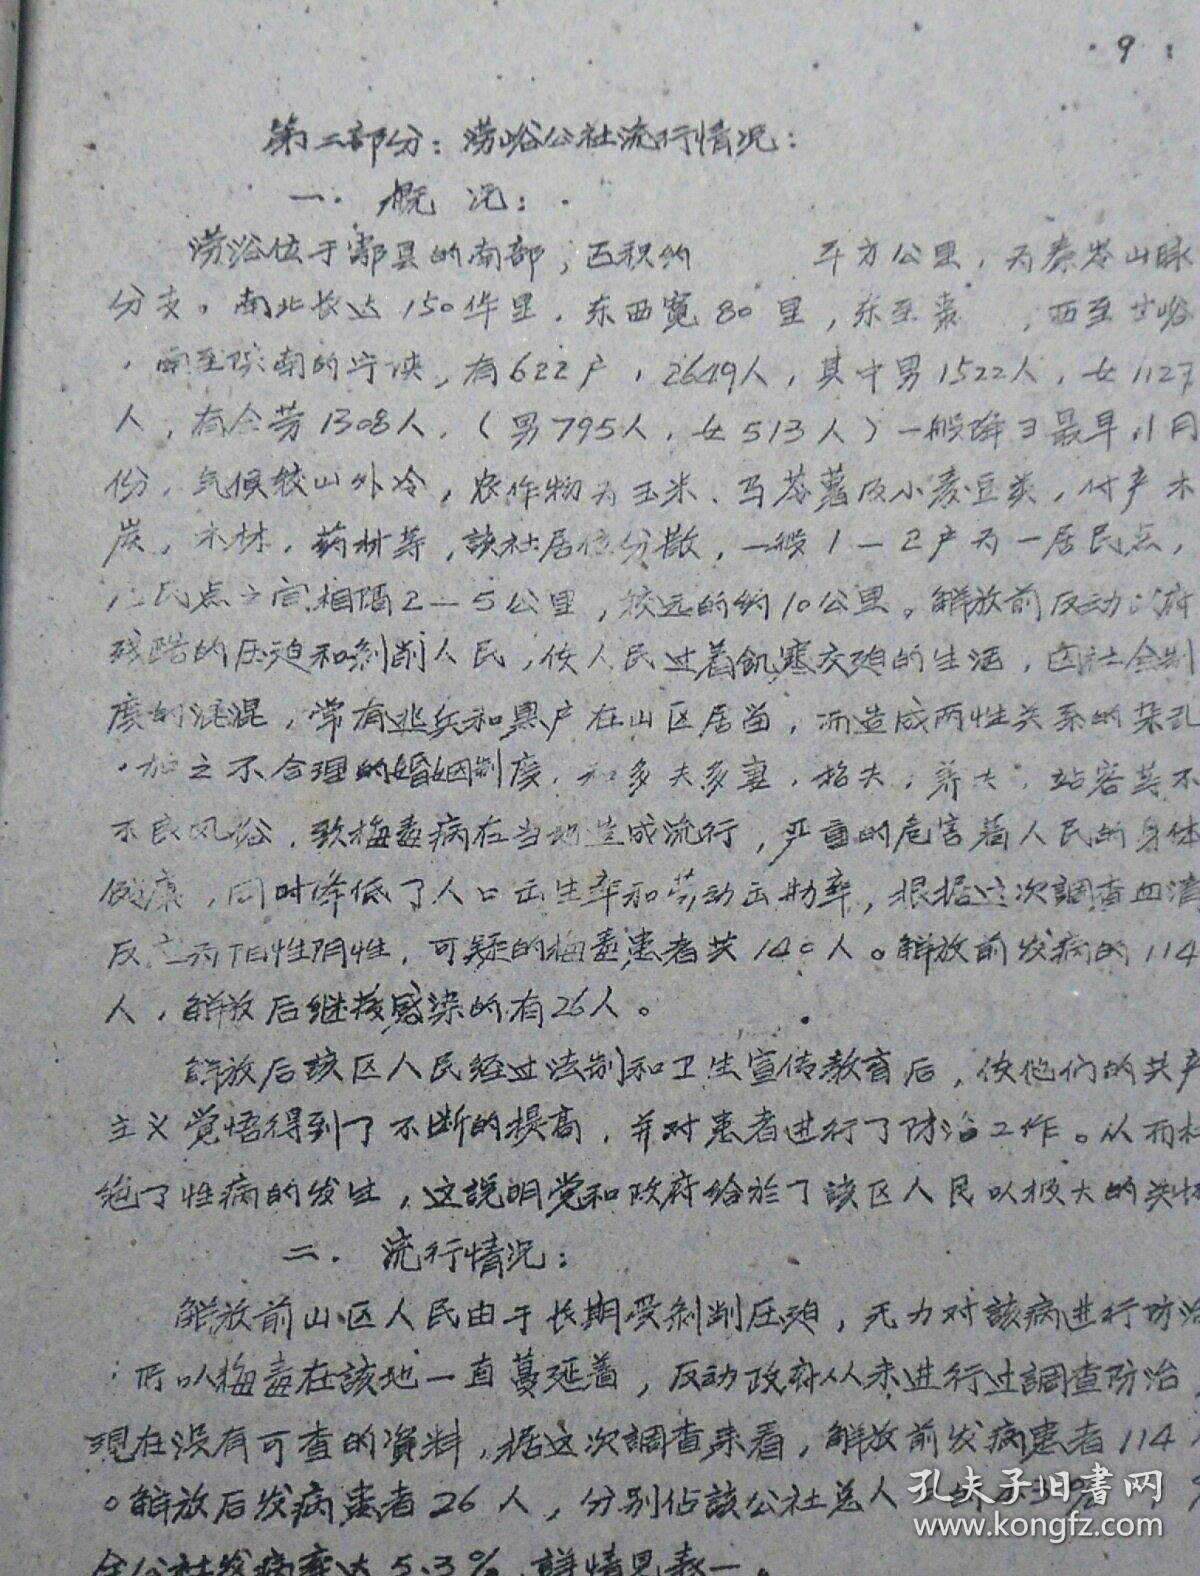 9
第二部分：涝峪公社流行情况：
一．概况：
涝浴位于鄠县的南部，面积约 平方公里，为秦岑山脉
分支。南北长达150华里．东西宽80里，东至 ，西至甘峪
，南至陕南的宁陕，有622户，2649人，其中男1522人，女1127
人，有全劳1308人．（男795人，女513人）一般降 最早八月
份，气候较山外冷，农作物为玉米、马苓薯及小麦豆类，付产木
炭，木材，药材等，該社居住分散，一般1－2户为一居民点，
居民点之间相隔2－5公里，较远的约10公里。解放前反动政府
残酷的压迫和剥削人民，使人民过着飢寒交迫的生活，因社会制
度的混混，常有逃兵和黑户在山区居留，而造成两性关系的杂乱
，加之不合理的婚姻制度，和多夫多妻，招夫，养夫，站客其不
不良风俗，致梅毒病在当地造成流行，严重的危害着人民的身体
健康，同时降低了人口出生率和劳动出勤率，根据这次調查血清
反应为阳性阴性，可疑的梅毒患者共140人。解放前发病的114
人，解放后继续感染的有26人。
解放后該区人民经过法制和卫生宣传教育后，使他们的共产
主义觉悟得到了不断的提高，并对患者进行了防治工作。从而杜
绝了性病的发生，这説明党和政府给於了該区人民以极大的关怀
二．流行情况：
解放前山区人民由于长期受剥削压迫，无力对該病进行防治
，所以梅毒在該地一直蔓延着，反动政府从未进行过調查防治，
現在没有可查的資料，据这次調查来看，解放前发病患者114
。解放后发病患者26人，分别佔該公社总人
全公社发病率达5.3％，詳情見表一。
孔夫子旧书网
www.kongfz.com